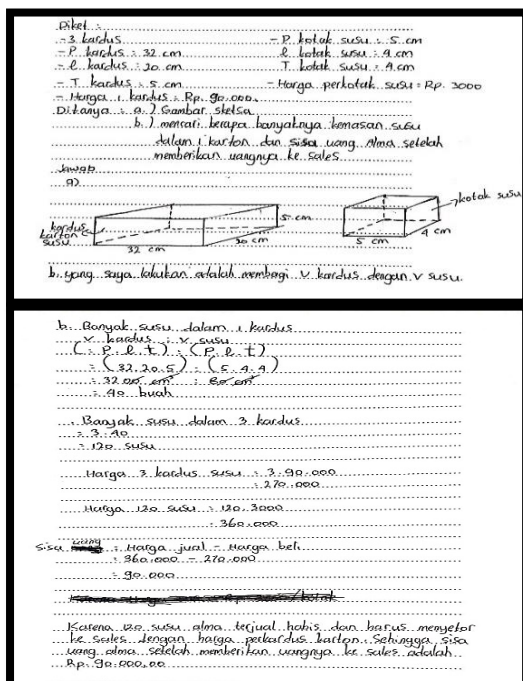 Diket :
- 3 kardus - P kotak susu : 5 cm
- P kardus : 32 cm l kotak susu : 4 cm
- l kardus : 20 cm T kotak susu : 4 cm
- T kardus : 5 cm - Harga perkotak susu : Rp. 3000
- Harga 1 kardus : Rp. 90.000.
Ditanya : a.) Gambar sketsa
b.) mencari berapa banyaknya kemasan susu
dalam 1 karton dan sisa uang Alma setelah
memberikan uangnya ke sales.
Jawab
a)
kotak susu
kardus
karton
susu
5 cm
32 cm 20 cm
5 cm 4 cm
b. yang saya lakukan adalah membagi V kardus dengan V susu.
b. Banyak susu dalam 1 kardus
V kardus : V susu
= (P.l.t) : (P.l.t)
= (32.20.5) : (5.4.4)
= 3200 cm³ : 80 cm³
= 40 buah
. Banyak susu dalam 3 kardus
= 3.40
= 120 susu
Harga 3 kardus susu = 3.90.000
= 270.000
Harga 120 susu = 120.3000
= 360.000
Sisa uang = Harga jual - Harga beli
= 360.000 - 270.000
= 90.000
Karena 120 susu alma terjual habis dan harus menyetor
ke sales dengan harga perkardus karton. Sehingga sisa
uang alma setelah memberikan uangnya ke sales adalah
Rp. 90.000,00